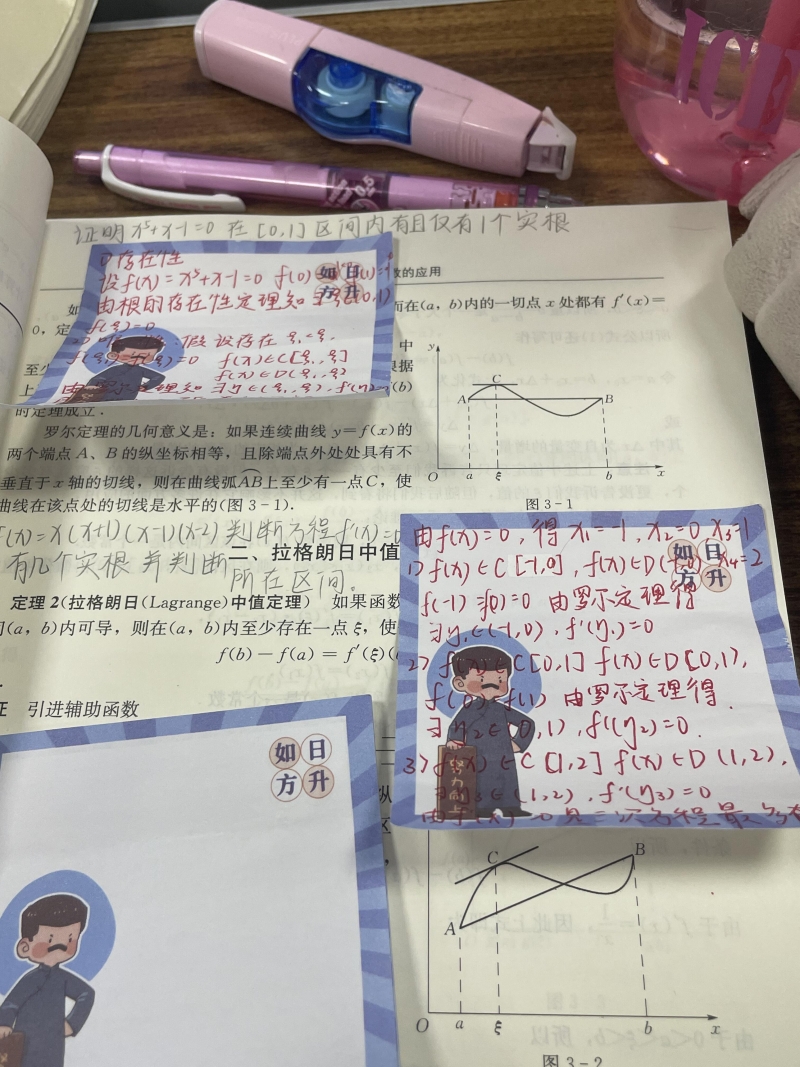 ICE
0.5
证明 x⁵+x-1=0 在 [0,1] 区间内有且仅有1个实根
数的应用
1) 存在性
设f(x)=x⁵+x-1=0 f(0)
由根的存在性定理知
f(ξ)=0
假设存在 ξ₁<ξ₂
f(x)∈C[ξ₁,ξ₂]
f(x)∈D(ξ₁,ξ₂)
如日
方升
而在(a, b)内的一切点 x 处都有 f′(x)=
0，定
中
至少
据
上
时定理成立．
罗尔定理的几何意义是：如果连续曲线 y=f(x)的
两个端点 A、B 的纵坐标相等，且除端点外处处具有不
垂直于 x 轴的切线，则在曲线弧AB上至少有一点C，使
曲线在该点处的切线是水平的(图 3-1)．
y
A
C
B
O
a
ξ
b
x
图 3-1
f(x)=x(x+1)(x-1)(x-2) 判断方程f′(x)=0
有几个实根 并判断
所在区间。
二、拉格朗日中值
定理 2(拉格朗日(Lagrange)中值定理) 如果函数
(a, b)内可导，则在(a, b)内至少存在一点 ξ，使
f(b)-f(a)=f′(ξ)(
证 引进辅助函数
由f(x)=0，得 x₁=-1, x₂=0 x₃=1
x₄=2
1) f(x)∈C[-1,0], f(x)∈D(-1,0)
f(-1)=f(0)=0 由罗尔定理得
∃η₁∈(-1,0), f′(η₁)=0
2) f(x)∈C[0,1] f(x)∈D(0,1),
f(0)=f(1) 由罗尔定理得
∃η₂∈(0,1), f′(η₂)=0.
3) f(x)∈C[1,2] f(x)∈D(1,2),
∃η₃∈(1,2), f′(η₃)=0
如日
方升
努力向上
如日
方升
C
B
A
O
a
ξ
b
x
图 3-2